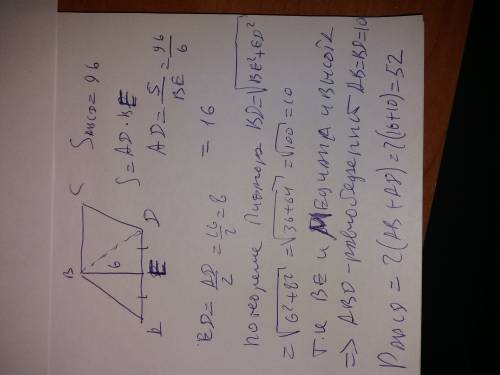 B C S ABCD = 96
6
A E D
S = AD · BE
AD = S/BE = 96/6 = 16
ED = AD/2 = 16/2 = 8
По теореме Пифагора BD = √BE²+ED²
= √6²+8² = √36+64 = √100 = 10
т.к BE и медиана и высота
=> ABD - равнобедренный AB=BD=10
P ABCD = 2(AB + AD) = 2(16+10) = 52